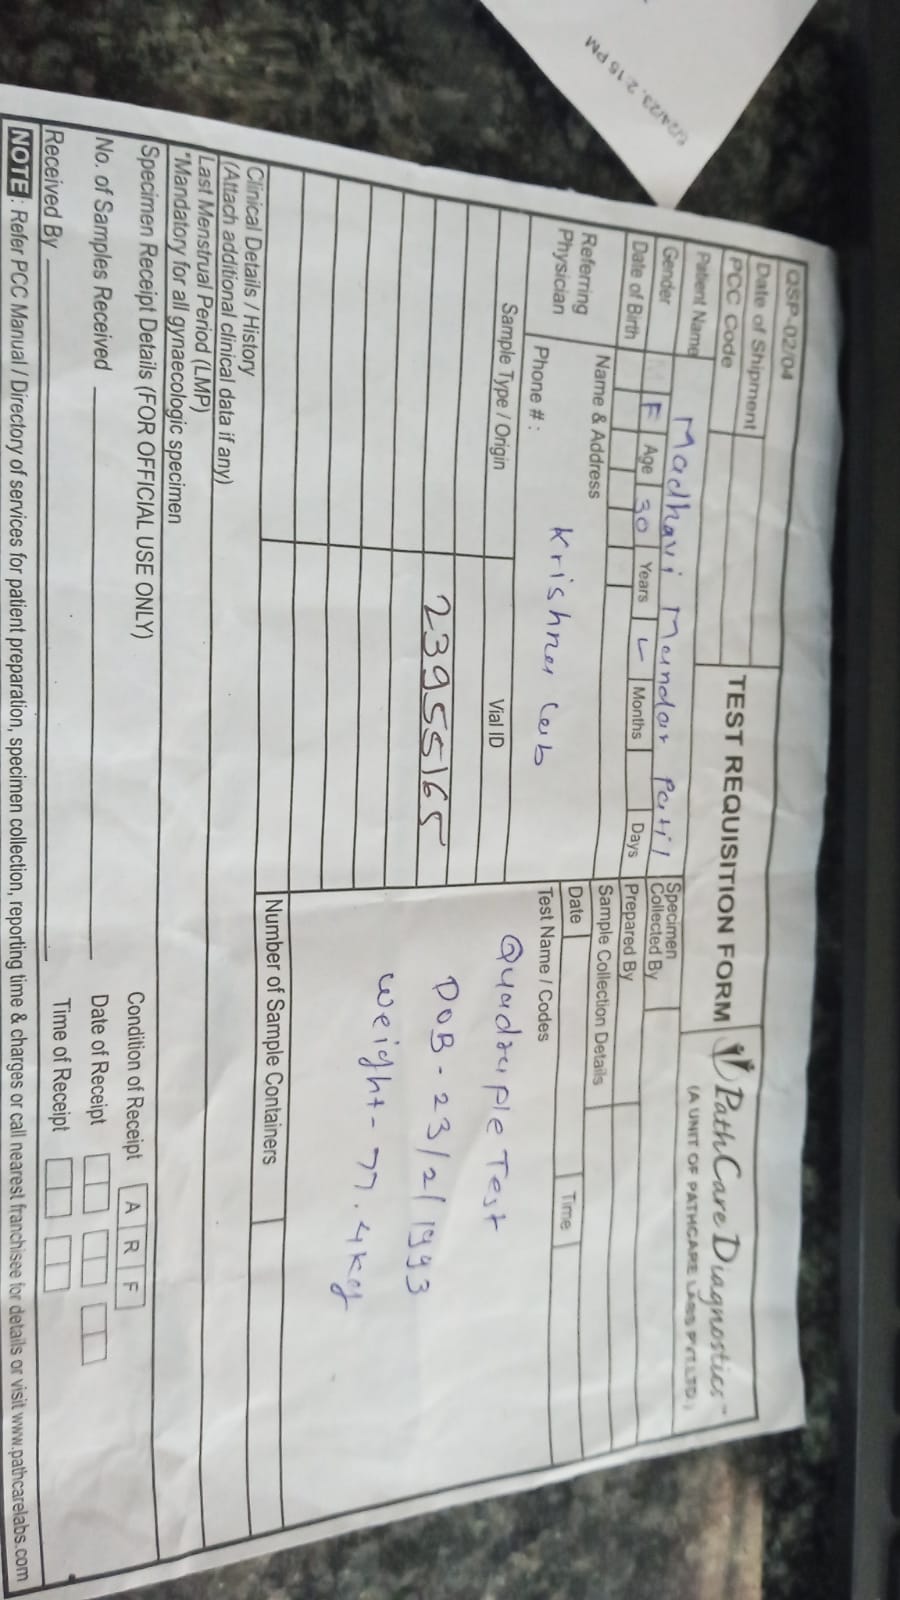 6/24/23, 2:15 PM
QSP-02/04
Date of Shipment
PCC Code
TEST REQUISITION FORM
PathCare Diagnostics™
(A UNIT OF PATHCARE LABS PVT.LTD.)
Patient Name Madhavi Mandar Patil
Gender M F Age 30 Years Months Days
Date of Birth
Specimen
Collected By
Prepared By
Referring
Physician
Name & Address
Krishna Lab
Phone # :
Sample Collection Details
Date Time
Sample Type / Origin
Vial ID
Test Name / Codes
23955165
Quadruple Test
DOB - 23/2/1993
Weight - 77.4kg
Clinical Details / History
(Attach additional clinical data if any)
Number of Sample Containers
Last Menstrual Period (LMP)
*Mandatory for all gynaecologic specimen
Specimen Receipt Details (FOR OFFICIAL USE ONLY)
No. of Samples Received
Condition of Receipt A R F
Date of Receipt
Received By
Time of Receipt
NOTE : Refer PCC Manual / Directory of services for patient preparation, specimen collection, reporting time & charges or call nearest franchisee for details or visit www.pathcarelabs.com